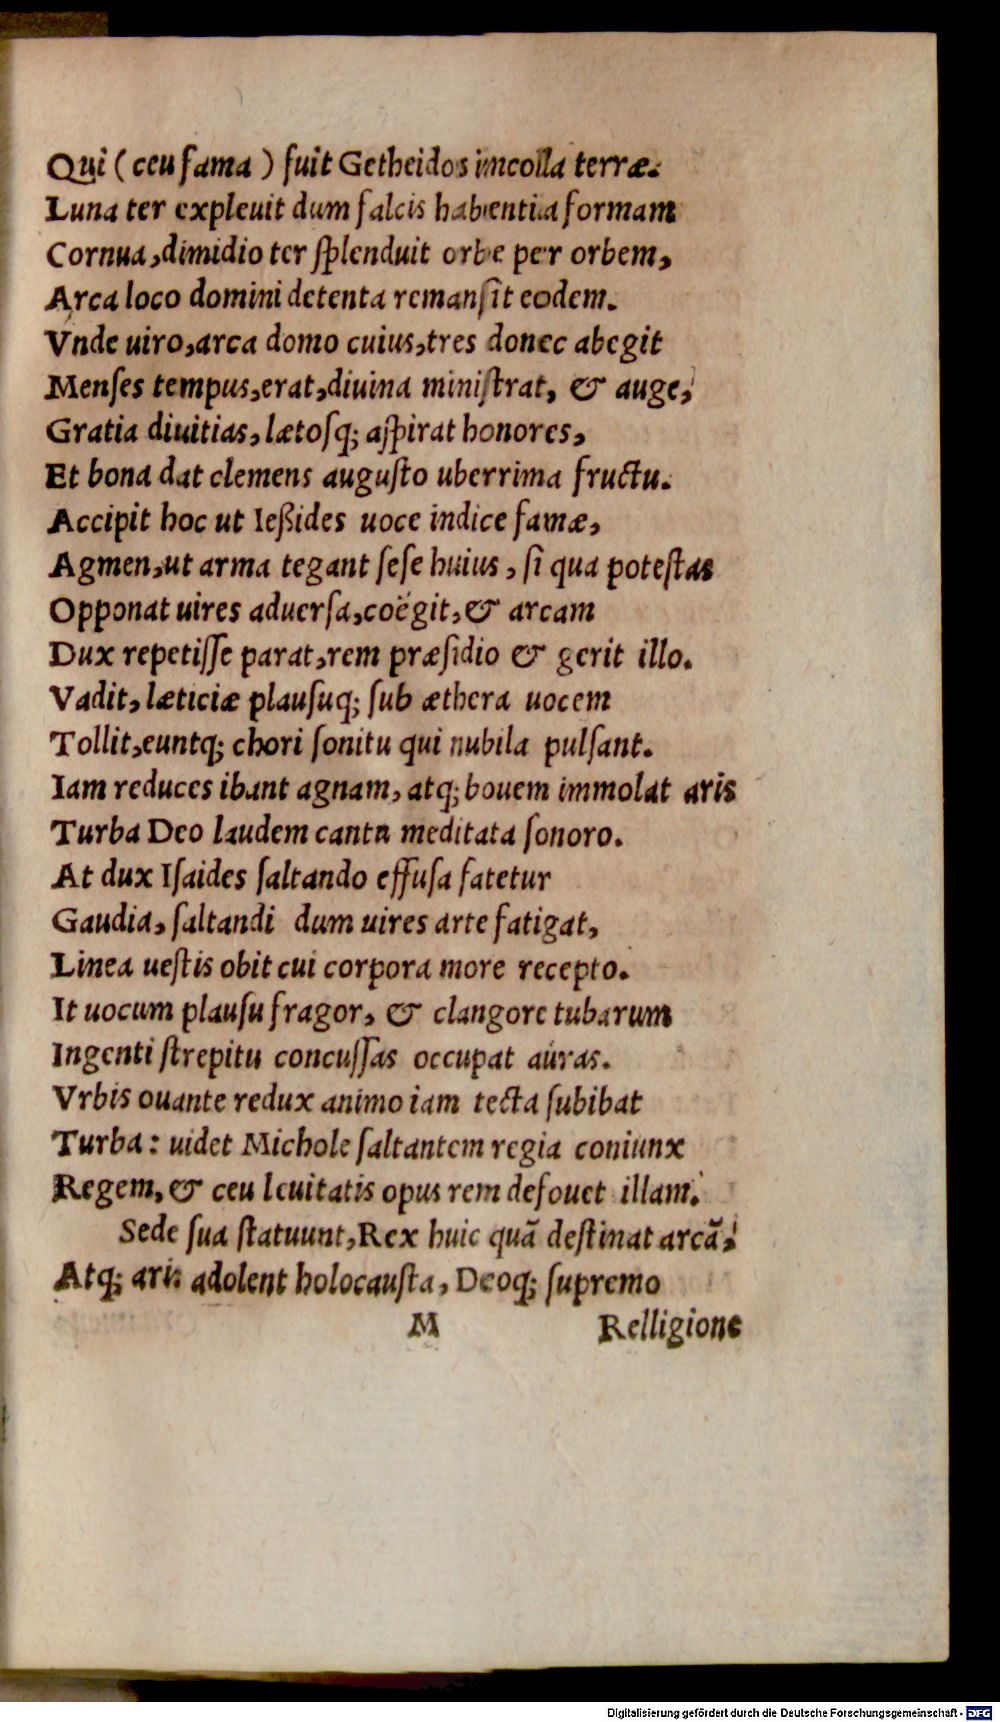 Qui (ceu fama) fuit Getheidos imcolla terræ.
Luna ter expleuit dum falcis habentia formam
Cornua, dimidio ter ſplenduit orbe per orbem,
Arca loco domini detenta remanſit eodem.
Vnde uiro, arca domo cuius, tres donec abegit
Menſes tempus, erat, diuina miniſtrat, & auge,
Gratia diuitias, lætoſq; aſpirat honores,
Et bona dat clemens auguſto uberrima fructu.
Accipit hoc ut Ießides uoce indice famæ,
Agmen, ut arma tegant ſeſe huius, ſi qua poteſtas
Opponat uires aduerſa, coëgit, & arcam
Dux repetiſſe parat, rem præſidio & gerit illo.
Vadit, læticiæ plauſuq; ſub æthera uocem
Tollit, euntq; chori ſonitu qui nubila pulſant.
Iam reduces ibant agnam, atq; bouem immolat aris
Turba Deo laudem cantu meditata ſonoro.
At dux Iſaides ſaltando effuſa fatetur
Gaudia, ſaltandi dum uires arte fatigat,
Linea ueſtis obit cui corpora more recepto.
It uocum plauſu fragor, & clangore tubarum
Ingenti ſtrepitu concuſſas occupat auras.
Vrbis ouante redux animo iam tecta ſubibat
Turba: uidet Michole ſaltantem regia coniunx
Regem, & ceu leuitatis opus rem defouet illam.
Sede ſua ſtatuunt, Rex huic quã deſtinat arcã,
Atq; aris adolent holocauſta, Deoq; ſupremo
M Relligione
Digitalisierung gefördert durch die Deutsche Forschungsgemeinschaft - DFG